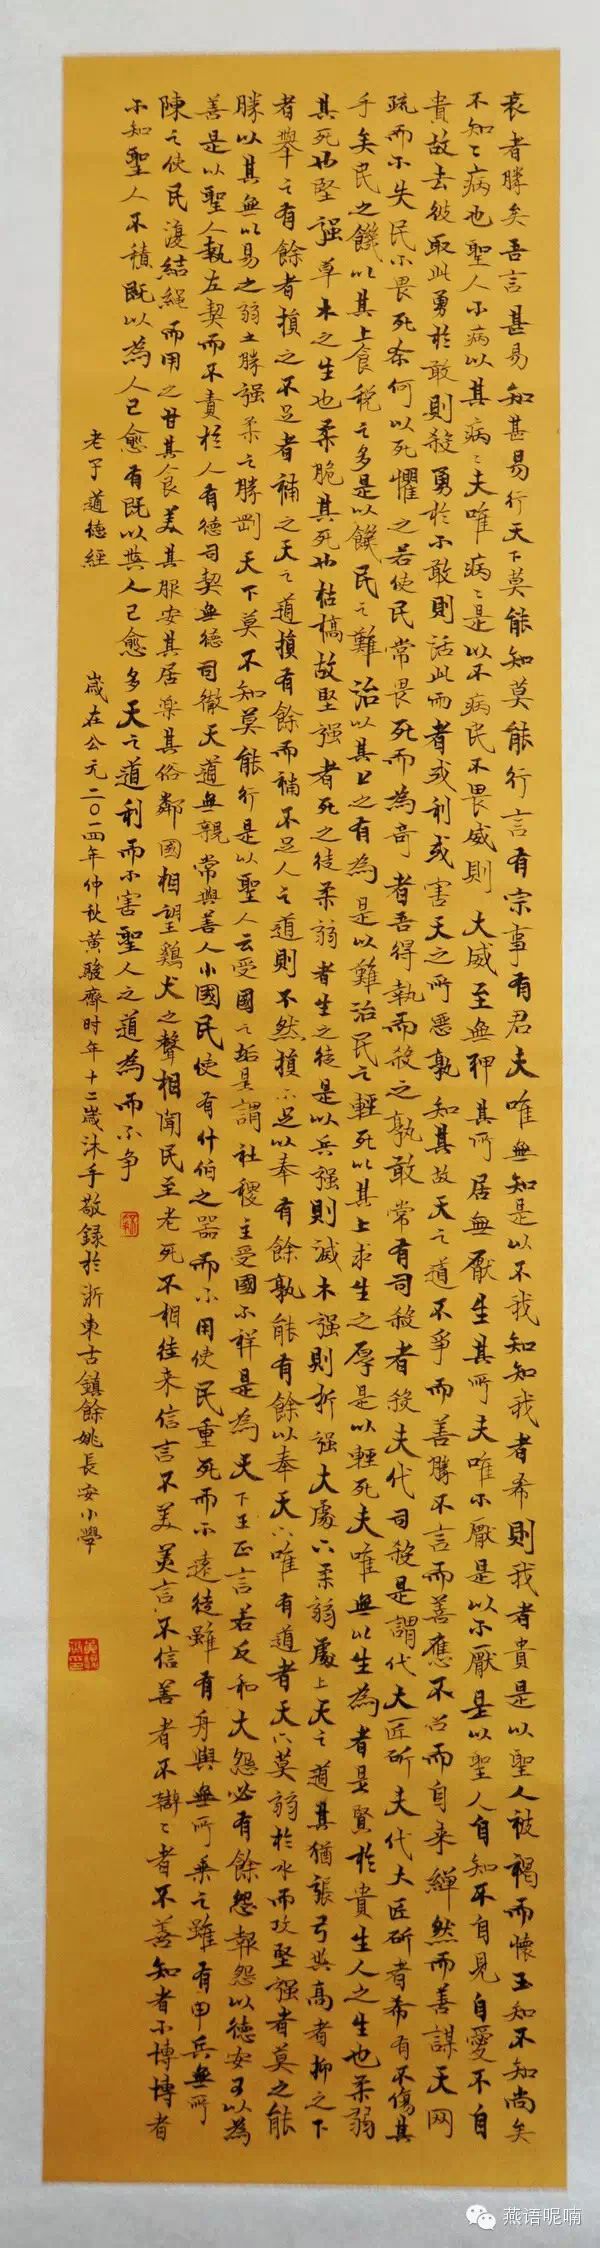 哀者勝矣吾言甚易知甚易行天下莫能知莫能行言有宗事有君夫唯無知是以不我知知我者希則我者貴是以聖人被褐而懷玉知不知尚矣
不知知病也聖人不病以其病病夫唯病病是以不病民不畏威則大威至無狎其所居無厭生其所夫唯不厭是以不厭是以聖人自知不自見自愛不自
貴故去彼取此勇於敢則殺勇於不敢則活此而者或利或害天之所惡孰知其故天之道不爭而善勝不言而善應不召而自来繟然而善謀天网
疏而不失民不畏死奈何以死懼之若使民常畏死而為奇者吾得執而殺之孰敢常有司殺者殺夫代司殺是謂代大匠斫夫代大匠斫者希有不傷其
手矣民之饑以其上食稅之多是以饑民之難治以其上之有為是以難治民之輕死以其上求生之厚是以輕死夫唯無以生為者是賢於貴生人之生也柔弱
其死也堅强草木之生也柔脆其死也枯槁故堅强者死之徒柔弱者生之徒是以兵强則滅木强則折强大處下柔弱處上天之道其猶張弓與高者抑之下
者舉之有餘者損之不足者補之天之道損有餘而補不足人之道則不然損不足以奉有餘孰能有餘以奉天下唯有道者天下莫弱於水而攻堅强者莫之能
勝以其無以易之弱之勝强柔之勝剛天下莫不知莫能行是以聖人云受國之垢是謂社稷主受國不祥是為天下王正言若反和大怨必有餘怨報怨以德安可以為
善是以聖人執左契而不責於人有德司契無德司徹天道無親常與善人小國民使有什伯之器而不用使民重死而不遠徒雖有舟輿無所乘之雖有甲兵無所
陳之使民復結繩而用之甘其食美其服安其居樂其俗鄰國相望鷄犬之聲相聞民至老死不相往来信言不美美言不信善者不辯辯者不善知者不博博者
不知聖人不積既以為人已愈有既以與人已愈多天之道利而不害聖人之道為而不争
老子道德經 歲在公元二〇一四年仲秋黄駿齊时年十二歲沐手敬録於浙東古鎮餘姚長安小學
燕语呢喃